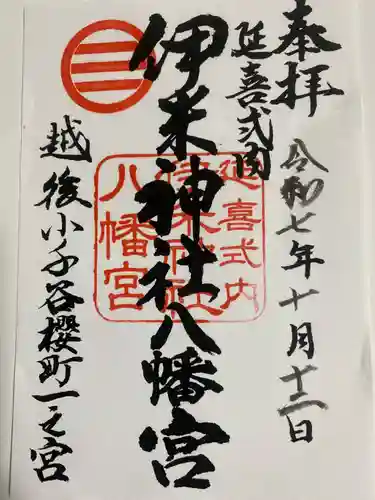 奉拝
令和七年十月十二日
延喜式内
伊米神社八幡宮
延喜式内
伊米神社
八幡宮
越後小千谷櫻町一之宮